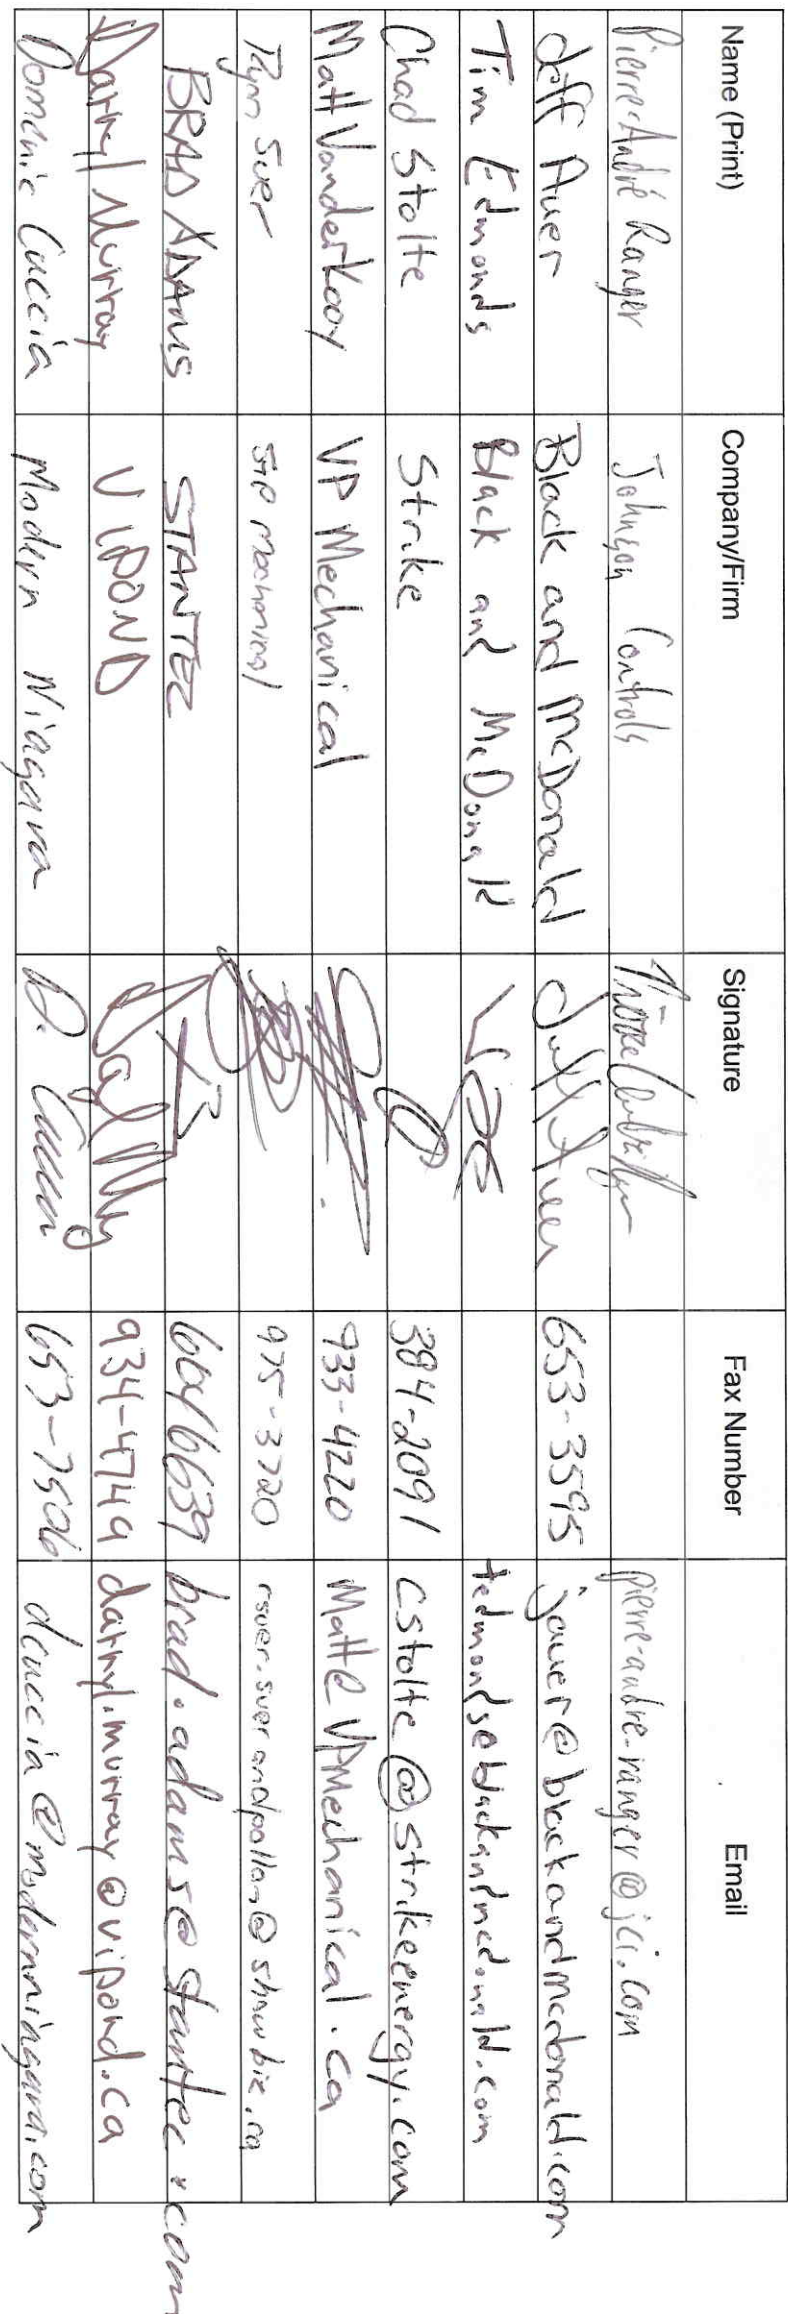 Name (Print) Company/Firm Signature Fax Number Email
Pierre-André Ranger Johnson Controls pierre-andre-ranger@jci.com
Jeff Auer Black and McDonald 653-3595 jauer@blackandmcdonald.com
Tim Edmonds Black and McDonald tedmonds@blackandmcdonald.com
Chad Stolte Strike 384-2091 cstolte@strikeenergy.com
Matt Vanderkooy VP Mechanical 933-4220 Matt@VPMechanical.ca
Ryan Suer Mechanical 975-3720 @shawbiz.ca
BRAD ADAMS STANTEC 6046639 brad.adams@stantec.com
Darryl Murray VIPOND 934-4749 darryl.murray@vipond.ca
Domenic Cuccia Modern Niagara D. Cuccia 653-7506 dcuccia@modernniagara.com